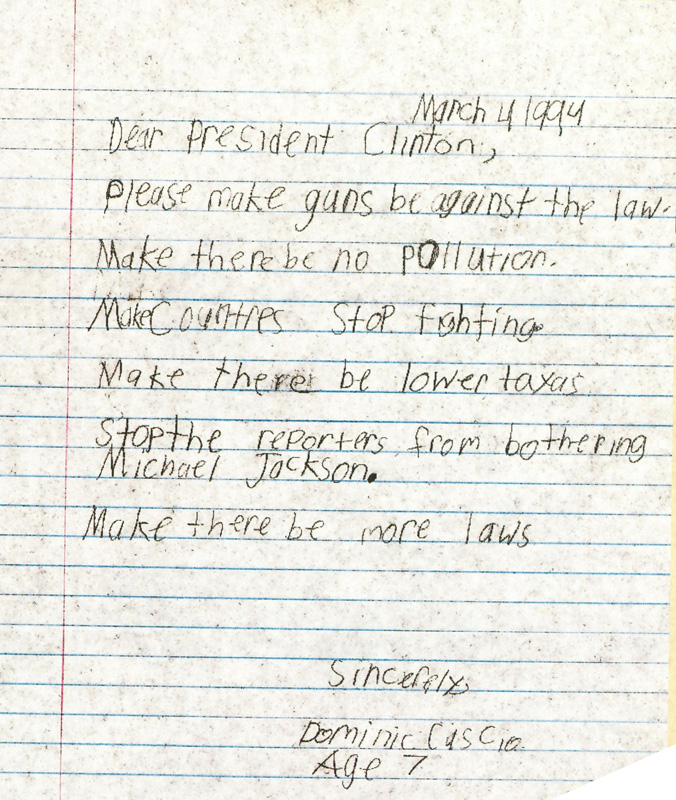 March 4 1994
Dear President Clinton,
Please make guns be against the law.
Make there be no pollution.
Make Countries Stop fighting.
Make there be lower taxas
Stop the reporters from bothering
Michael Jackson.
Make there be more laws
Sincerely,
Dominic Cascio
Age 7